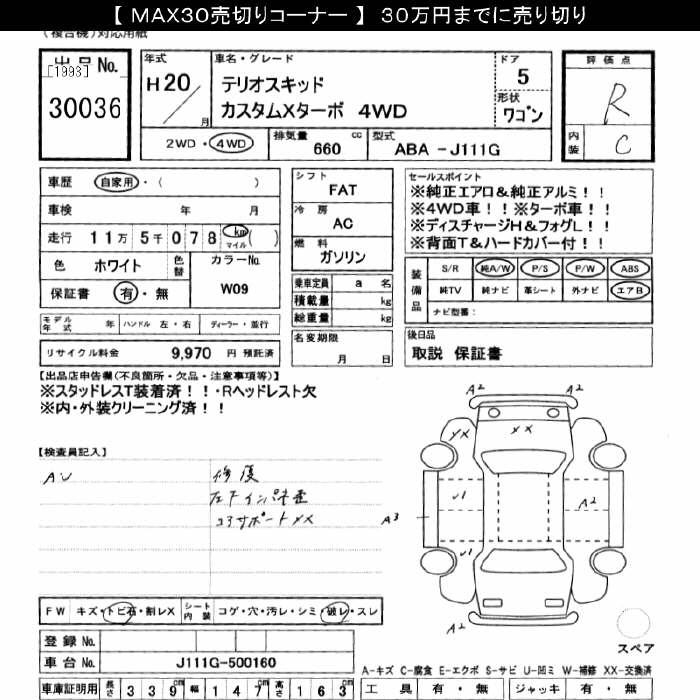 【 MAX30売切りコーナー 】 30万円までに売り切り
(複合機)対応用紙
出品No.
[1993]
30036
年式
H20/
月
車名・グレード
テリオスキッド
カスタムXターボ 4WD
ドア
5
形状
ワゴン
評価点
R
内装
C
2WD・4WD
排気量
660 cc
型式
ABA -J111G
車歴 自家用・( )
車検 年 月
走行 11万5千078 km マイル ( )
色 ホワイト 色替
カラーNo.
W09
保証書 有・無
シフト
FAT
冷房
AC
燃料
ガソリン
乗車定員 a 名
積載量 kg
総重量 kg
セールスポイント
※純正エアロ&純正アルミ!!
※4WD車!!※ターボ車!!
※ディスチャージH&フォグL!!
※背面T&ハードカバー付!!
装備品
S/R 純A/W P/S P/W ABS
純TV 純ナビ 革シート 外ナビ エアB
ナビ型番:
モデル年式 年 ハンドル 左・右 ディーラー・並行
名変期限
月 日
後日品
取説 保証書
リサイクル料金 9,970 円 預託済
【出品店申告欄(不良箇所・欠品・注意事項等)】
※スタッドレスT装着済!!・Rヘッドレスト欠
※内・外装クリーニング済!!
【検査員記入】
AU
修復
コアサポートXX
A2 A2
XX
XX
√1
A2
A3
√1
A2
FW キズ・トビ石・割レX シート内装 コゲ・穴・汚レ・シミ・破レ・スレ
登録No.
車台No. J111G-500160
スペア
A-キズ C-腐食 E-エクボ S-サビ U-凹ミ W-補修 XX-交換済
車庫証明用 長さ 339cm 幅 147cm 高さ 163cm
工具 有・無 ジャッキ 有・無